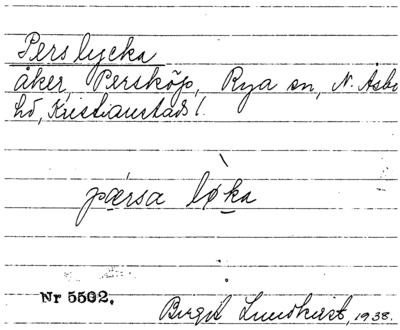 Perslycka
åker, Persköp, Rya sn, N. Åsbo
hd, Kristianstads l.
pærsa løka
Nr 5502.
Birgit Lundkvist, 1938.